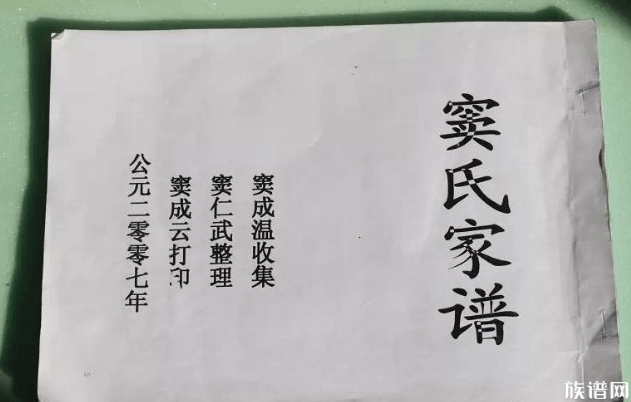 窦氏家谱
窦成温收集
窦仁武整理
窦成云打印
公元二零零七年
族谱网